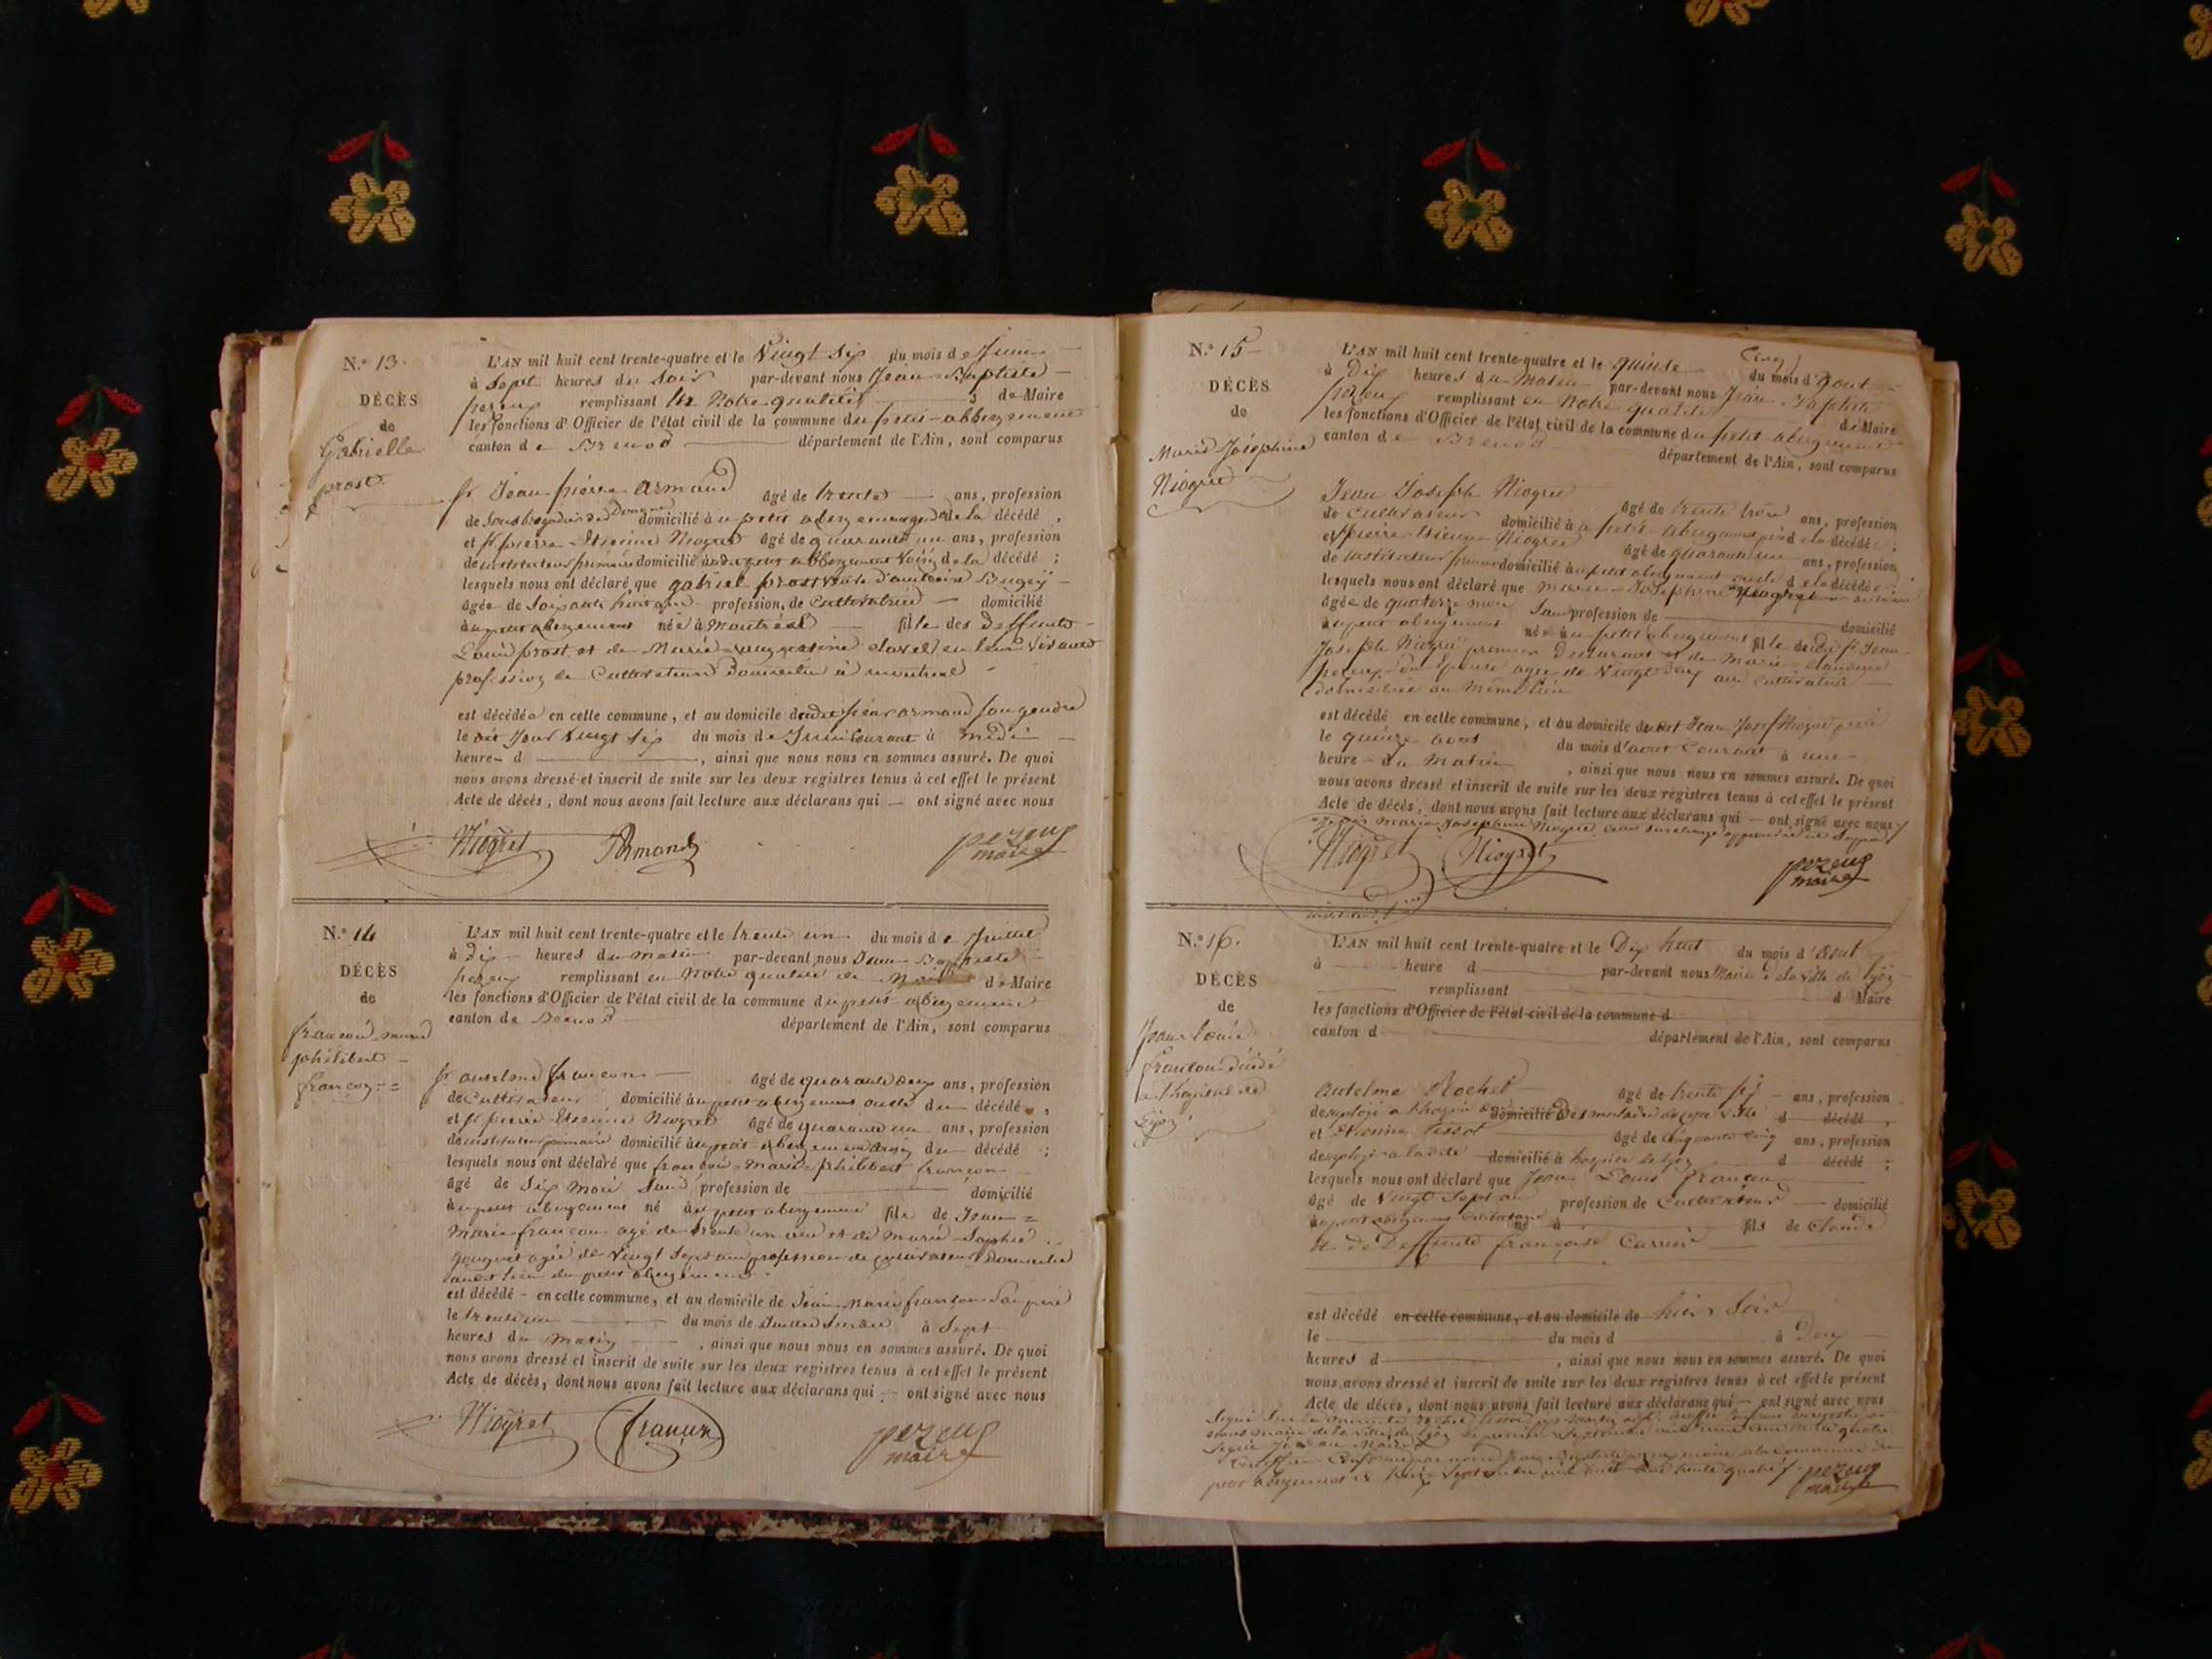 N.° 13.
DÉCÈS
de
Gabrielle
prost
L'AN mil huit cent trente-quatre et le Vingt Six du mois de Juin
à Sept heures du Soir par-devant nous Jean Baptiste
pezeux remplissant en Notre qualité de Maire
les fonctions d'Officier de l'état civil de la commune du petit abbergement
canton de Brenod département de l'Ain, sont comparus
sr Jean pierre Armand âgé de trente ans, profession
de Sousbrigadier des Douanes domicilié au petit abergement gendre de la décédé,
et sr pierre Etienne Niogret âgé de quarante un ans, profession
de instituteur primaire domicilié audit petit abbergement Voisin de la décédé ;
lesquels nous ont déclaré que gabriel prost veuve d'antoine Bugey
âgée de Soixante huit ans profession de Cultivatrice domicilié
au petit abergement née à Montréal fille des deffunts
Louis prost et de Marie en leur vivant
profession de Cultivateurs Domiciliés à montreal
est décédée en cette commune, et au domicile dudit pierre armand son gendre
le dit jour Vingt Six du mois de Juin Courant à midi
heure d , ainsi que nous nous en sommes assuré. De quoi
nous avons dressé et inscrit de suite sur les deux registres tenus à cet effet le présent
Acte de décès, dont nous avons fait lecture aux déclarans qui — ont signé avec nous
Niogret Armand pezeux
maire
N.° 14
DÉCÈS
de
françois marie
philibert
françon
L'AN mil huit cent trente-quatre et le trente un du mois de Juillet
à dix heures du matin par-devant nous Jean Baptiste
pezeux remplissant en Notre qualité de de Maire
les fonctions d'Officier de l'état civil de la commune du petit abergement
canton de Brenod département de l'Ain, sont comparus
sr anselme françon âgé de quarante deux ans, profession
de Cultivateur domicilié au petit abergement oncle du décédé,
et sr pierre Etienne Niogret âgé de quarante un ans, profession
de instituteur primaire domicilié au petit abergement voisin du décédé ;
lesquels nous ont déclaré que françois Marie philibert françon
âgé de Six mois Sans profession de domicilié
au petit abergement né au petit abergement fils de Jean
Marie françon agé de trente un ans et de Marie Sophie
agée de Vingt Sept ans profession de cultivateurs Domiciliés
audit lieu du petit abergement
est décédé en cette commune, et au domicile de Jean Marie françon Son père
le trente un du mois de Juillet à Sept
heures du Matin , ainsi que nous nous en sommes assuré. De quoi
nous avons dressé et inscrit de suite sur les deux registres tenus à cet effet le présent
Acte de décès, dont nous avons fait lecture aux déclarans qui — ont signé avec nous
Niogret françon pezeux
maire
N.° 15
DÉCÈS
de
Marie Joséphine
Niogret
L'AN mil huit cent trente-quatre et le quinze du mois d'aout
à Dix heures du Matin par-devant nous Jean Baptiste
pezeux remplissant en Notre qualité de Maire
les fonctions d'Officier de l'état civil de la commune du petit abergement
canton de Brenod département de l'Ain, sont comparus
Jean Joseph Niogret âgé de trente trois ans, profession
de Cultivateur domicilié au petit abergement père de la décédée ;
et pierre Etienne Niogret âgé de quarante un ans, profession
de instituteur primaire domicilié au petit abergement oncle de la décédée ;
lesquels nous ont déclaré que Marie Joséphine Niogret
âgée de quatorze mois Sans profession de domicilié
au petit abergement née au petit abergement fille dudit sr Jean
Joseph Niogret premier Déclarant et de Marie Claudine
pezeux Son Epouse agée de Vingt Deux ans cultivatrice
domiciliée au Même lieu
est décédé en cette commune, et au domicile dudit Jean Joseph Niogret père
le quinze aout du mois d'aout Courant à une
heure du Matin , ainsi que nous nous en sommes assuré. De quoi
nous avons dressé et inscrit de suite sur les deux registres tenus à cet effet le présent
Acte de décès, dont nous avons fait lecture aux déclarans qui — ont signé avec nous
Niogret Niogret pezeux
maire
N.° 16.
DÉCÈS
de
Jean Louis
françon décédé
à l'hopital de
Lyon
L'AN mil huit cent trente-quatre et le Dix huit du mois d'Aout
à heure d par-devant nous Maire de la Ville de Lyon
remplissant d Maire
les fonctions d'Officier de l'état civil de la commune d
canton d département de l'Ain, sont comparus
Antelme Rochet âgé de trente six ans, profession
domicilié d décédé ,
et Etienne Tissot âgé de cinquante cinq ans, profession
domicilié à d décédé ;
lesquels nous ont déclaré que Jean Louis françon
âgé de Vingt Sept ans profession de Cultivateur domicilié
au petit abergement né à fils de Claude
et de Deffunte françoise Carrier
est décédé en cette commune, et au domicile de hier Soir
le du mois d à Deux
heures d , ainsi que nous nous en sommes assuré. De quoi
nous avons dressé et inscrit de suite sur les deux registres tenus à cet effet le présent
Acte de décès, dont nous avons fait lecture aux déclarans qui — ont signé avec nous
pezeux
maire